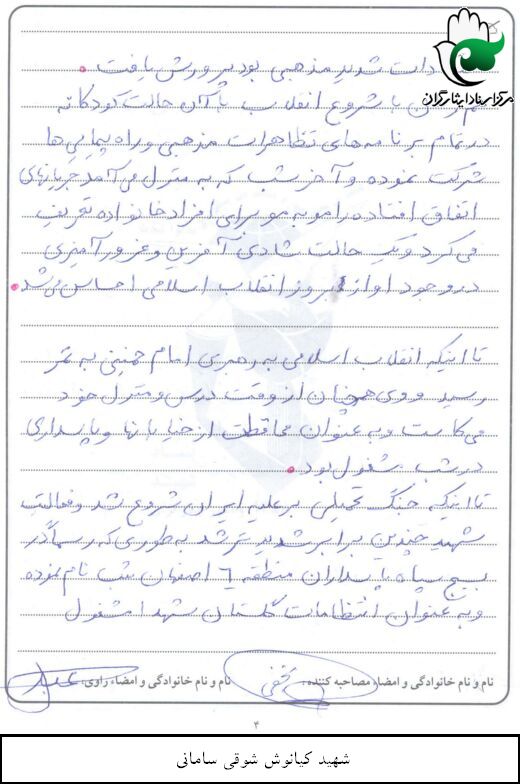 مرکز اسناد ایثارگران
شدید مذهبی بود پرورش یافت.
با شروع انقلاب با آن حالت کودکانه
در تمام برنامه‌های تظاهرات مذهبی و راه پیمایی‌ها
شرکت نموده و آخر شب که به منزل می‌آمد جریانهای
اتفاق افتاده را مو به مو برای افراد خانواده تعریف
می‌کرد و یک حالت شادی آفرین و غرور آمیزی
در وجود او از پیروز انقلاب اسلامی احساس می‌شد.
تا اینکه انقلاب اسلامی به رهبری امام خمینی به ثمر
رسید و وی همچنان از وقت درس و منزل خود
می‌کاست و به عنوان محافظت از خیابانها و پاسداری
در شب مشغول بود.
تا اینکه جنگ تحمیلی بر علیه ایران شروع شد و فعالیت
شهید چندین برابر شدید تر شد به طوری که رسماً در
بسیج سپاه پاسداران منطقه ۶ اصفهان ثبت نام نموده
و به عنوان انتظامات گلستان شهدا مشغول
نام و نام خانوادگی و امضاء مصاحبه کننده: نام و نام خانوادگی و امضاء راوی:
۴
شهید کیانوش شوقی سامانی